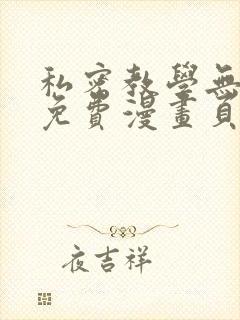 私密教學無
免費漫畫頁
夜吉祥